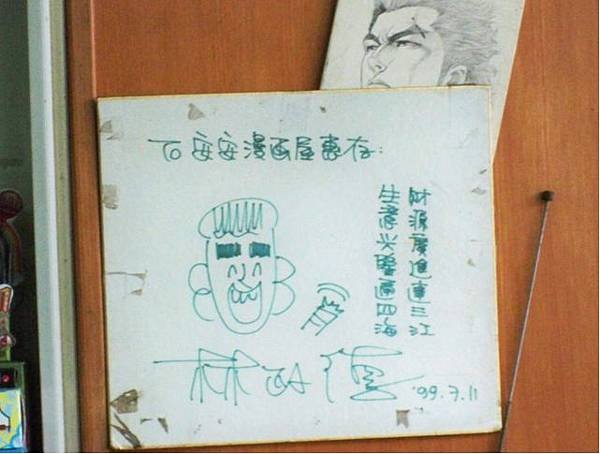 To 安安漫画屋惠存:
財源廣進達三江
生意兴隆通四海
林政德 '99.7.11